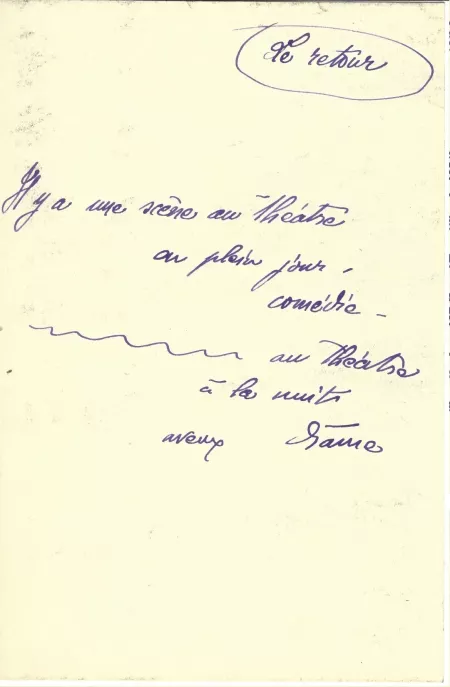 Le retour
Il y a une scène au Théâtre
en plein jour.
comédie -
au Théâtre
à la nuit
aveux Drame